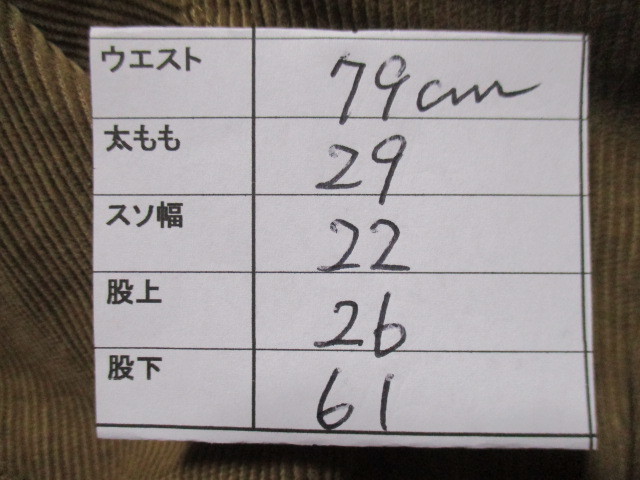 ウエスト 79cm
太もも 29
スソ幅 22
股上 26
股下 61